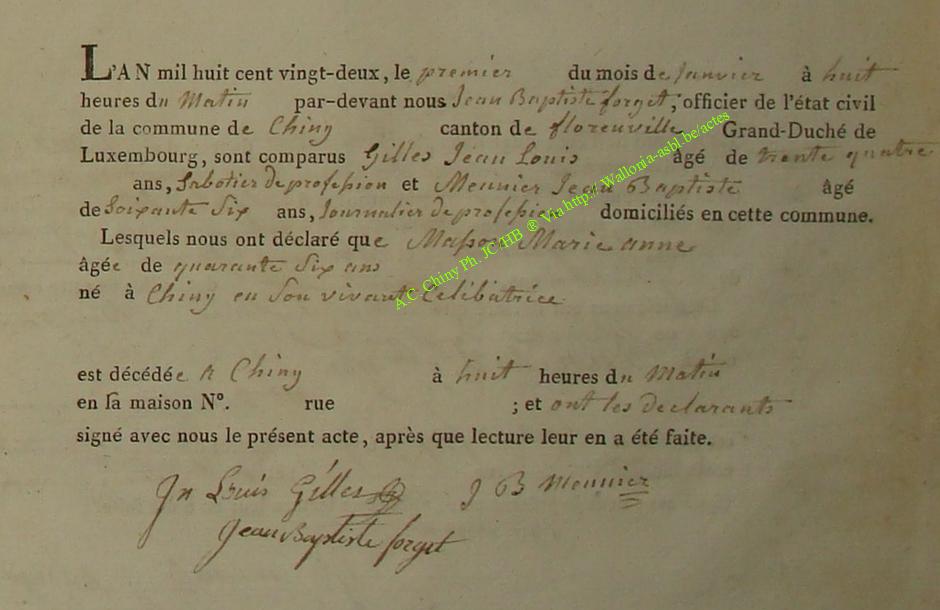 L'AN mil huit cent vingt-deux, le premier du mois de Janvier à huit
heures du Matin par-devant nous Jean Baptiste forget, officier de l'état civil
de la commune de Chiny canton de florenville Grand-Duché de
Luxembourg, sont comparus Gilles Jean Louis âgé de trente quatre
ans, Sabotier de profession et Meunier Jean Baptiste âgé
de Soixante Six ans, Journalier de profession domiciliés en cette commune.
Lesquels nous ont déclaré que Masson Marie anne
âgée de quarante Six ans
né à Chiny en Son vivant Celibatrice
est décédée a Chiny à huit heures du Matin
en sa maison N°. rue ; et ont les declarants
signé avec nous le présent acte, après que lecture leur en a été faite.
Jn Louis Gilles J B Meunier
Jean Baptiste forget
A.C. Chiny Ph. JC/HB ® Via http://Wallonia-asbl.be/actes